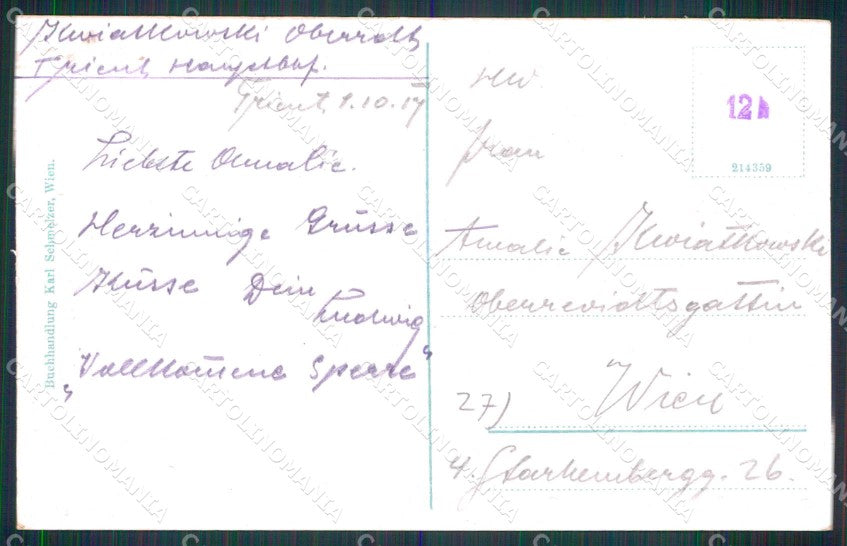 Kwiatkowski Oberroth
Trient, Hauptbhf.
Trient, 1.10.17
Liebste Amalie.
Herzinnige Grüsse
Küsse Dein
Ludwig
„Vollkommene Sperre"
Buchhandlung Karl Schmelzer, Wien.
12
214359
Frau
Amalie Kwiatkowski
Oberrevidentsgattin
Wien
27)
4. Starhembergg. 26.
CARTOLINOMANIA